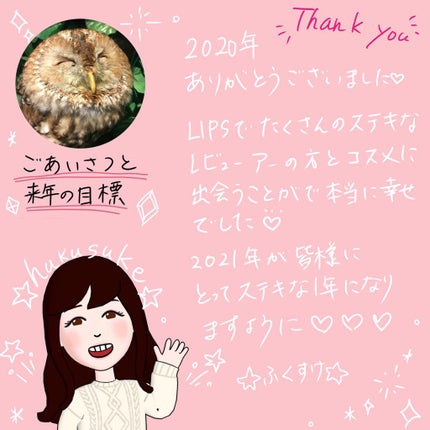 Thank you
2020年
ありがとうございました♡
LIPSでたくさんのステキな
レビューアーの方とコスメに
出会うことがで本当に幸せ
でした♡
2021年が皆様に
とってステキな1年になり
ますように♡♡♡
☆ふくすけ☆
ごあいさつと
来年の目標
☆hukusuke☆